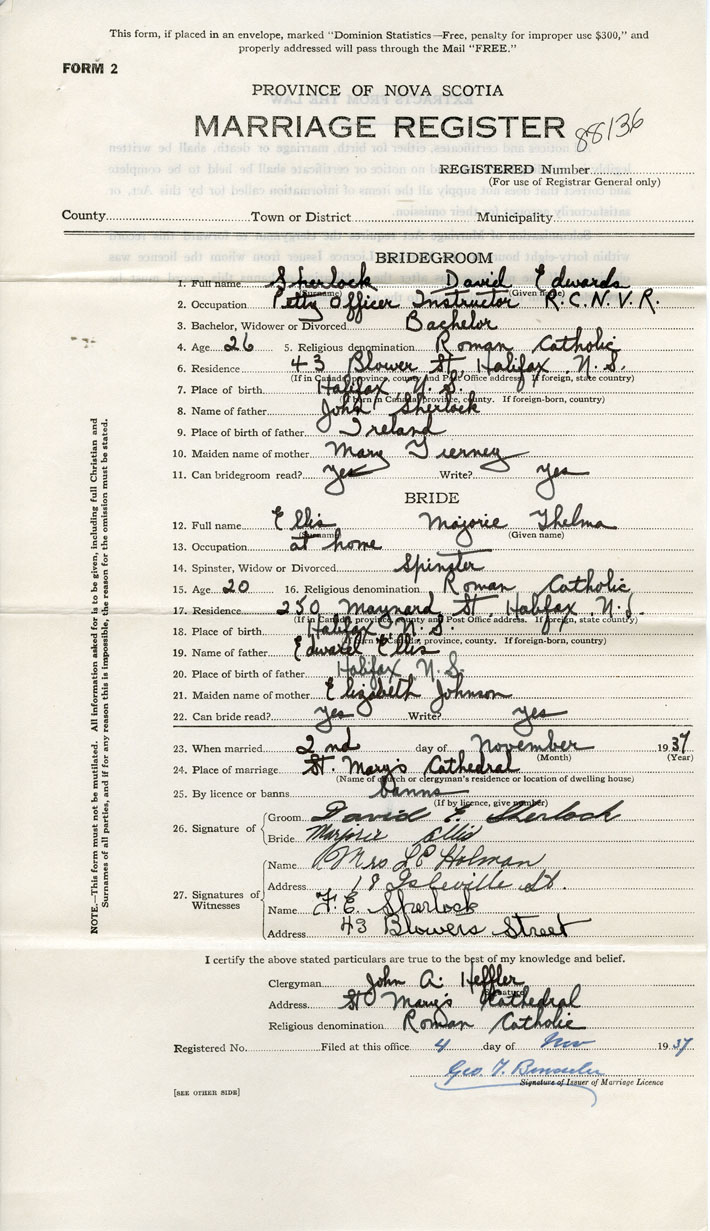 This form, if placed in an envelope, marked "Dominion Statistics—Free, penalty for improper use $300," and
properly addressed will pass through the Mail "FREE."
FORM 2
PROVINCE OF NOVA SCOTIA
MARRIAGE REGISTER 88136
REGISTERED Number
(For use of Registrar General only)
County Town or District Municipality
BRIDEGROOM
1. Full name Sherlock David Edwards
(Surname) (Given name)
2. Occupation Petty Officer Instructor R.C.N.V.R.
3. Bachelor, Widower or Divorced Bachelor
4. Age 26 5. Religious denomination Roman Catholic
6. Residence 43 Blower St, Halifax, N.S.
(If in Canada, province, county and Post Office address. If foreign, state country)
7. Place of birth Halifax N.S.
(If born in Canada, province, county. If foreign-born, country)
8. Name of father John Sherlock
9. Place of birth of father Ireland
10. Maiden name of mother Mary Tierney
11. Can bridegroom read? yes Write? yes
BRIDE
12. Full name Ellis Marjorie Thelma
(Surname) (Given name)
13. Occupation at home
14. Spinster, Widow or Divorced Spinster
15. Age 20 16. Religious denomination Roman Catholic
17. Residence 250 Maynard St, Halifax, N.S.
(If in Canada, province, county and Post Office address. If foreign, state country)
18. Place of birth Halifax N.S.
(If born in Canada, province, county. If foreign-born, country)
19. Name of father Edward Ellis
20. Place of birth of father Halifax N.S.
21. Maiden name of mother Elizabeth Johnson
22. Can bride read? yes Write? yes
23. When married 2nd day of November 1937
(Month) (Year)
24. Place of marriage St. Mary's Cathedral
(Name of church or clergyman's residence or location of dwelling house)
25. By licence or banns banns
(If by licence, give number)
26. Signature of Groom David E. Sherlock
Bride Marjorie Ellis
27. Signatures of Witnesses
Name Mrs L E Holman
Address 18 St.
Name F. E. Sherlock
Address 43 Blowers Street
I certify the above stated particulars are true to the best of my knowledge and belief.
Clergyman John A. Heffler
Signature
Address St Mary's Cathedral
Religious denomination Roman Catholic
Registered No. Filed at this office 4 day of Nov 1937
Geo. T.
Signature of Issuer of Marriage Licence
[SEE OTHER SIDE]
NOTE.—This form must not be mutilated. All information asked for is to be given, including full Christian and
Surnames of all parties, and if for any reason this is impossible, the reason for the omission must be stated.